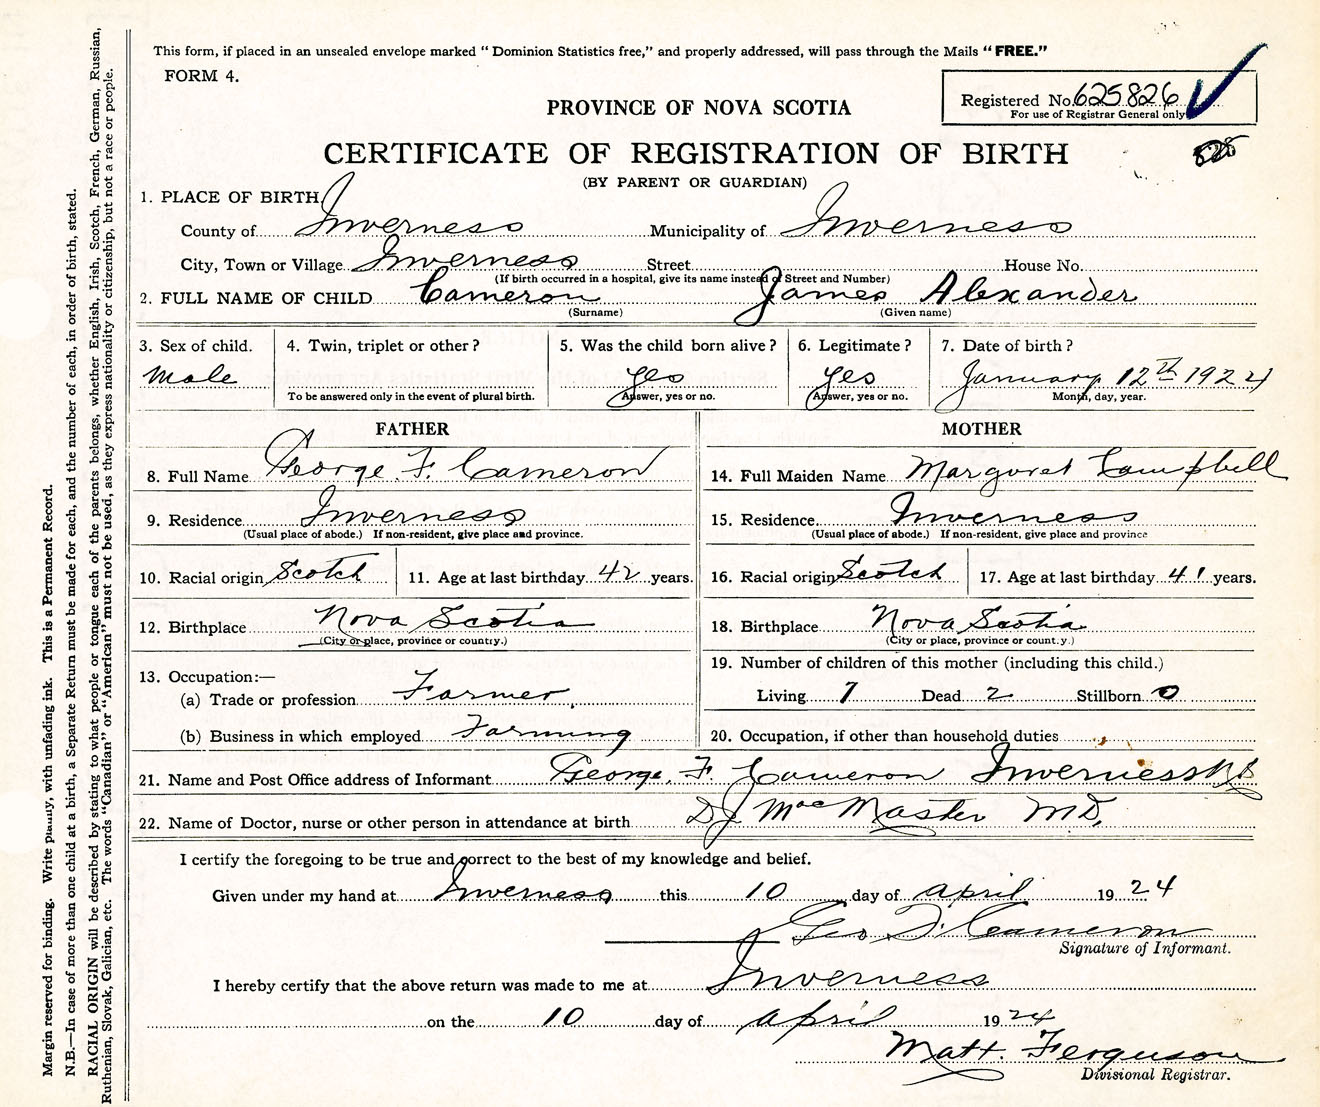 This form, if placed in an unsealed envelope marked “Dominion Statistics free,” and properly addressed, will pass through the Mails “FREE.”
FORM 4.
Registered No. 625826
For use of Registrar General only
PROVINCE OF NOVA SCOTIA
CERTIFICATE OF REGISTRATION OF BIRTH
(BY PARENT OR GUARDIAN)
1. PLACE OF BIRTH
County of Inverness Municipality of Inverness
City, Town or Village Inverness Street House No.
(If birth occurred in a hospital, give its name instead of Street and Number)
2. FULL NAME OF CHILD Cameron James Alexander
(Surname) (Given name)
3. Sex of child. 4. Twin, triplet or other? 5. Was the child born alive? 6. Legitimate? 7. Date of birth?
male yes yes January 12th 1924
To be answered only in the event of plural birth. Answer, yes or no. Answer, yes or no. Month, day, year.
FATHER MOTHER
8. Full Name George F. Cameron 14. Full Maiden Name Margaret Campbell
9. Residence Inverness 15. Residence Inverness
(Usual place of abode.) If non-resident, give place and province. (Usual place of abode.) If non-resident, give place and province
10. Racial origin Scotch 11. Age at last birthday 42 years. 16. Racial origin Scotch 17. Age at last birthday 41 years.
12. Birthplace Nova Scotia 18. Birthplace Nova Scotia
(City or place, province or country.) (City or place, province or country.)
13. Occupation:— 19. Number of children of this mother (including this child.)
(a) Trade or profession Farmer Living 7 Dead 2 Stillborn 0
(b) Business in which employed Farming 20. Occupation, if other than household duties
21. Name and Post Office address of Informant George. F. Cameron Inverness NS
22. Name of Doctor, nurse or other person in attendance at birth DJ MacMaster MD,
I certify the foregoing to be true and correct to the best of my knowledge and belief.
Given under my hand at Inverness this 10 day of april 1924
Geo F. Cameron
Signature of Informant.
I hereby certify that the above return was made to me at Inverness
on the 10 day of april 1924
Matt. Ferguson
Divisional Registrar.
Margin reserved for binding. Write plainly, with unfading ink. This is a Permanent Record.
N.B.—In case of more than one child at a birth, a Separate Return must be made for each, and the number of each, in order of birth, stated.
RACIAL ORIGIN will be described by stating to what people or tongue each of the parents belongs, whether English, Irish, Scotch, French, German, Russian,
Ruthenian, Slovak, Galician, etc. The words “Canadian” or “American” must not be used, as they express nationality or citizenship, but not a race or people.